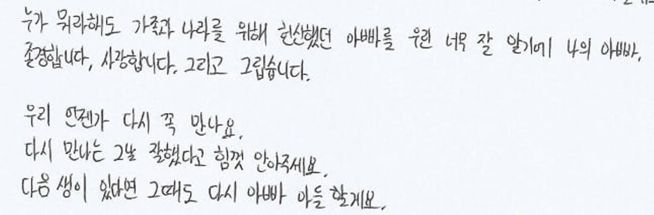 누가 뭐라해도 가족과 나라를 위해 헌신했던 아빠를 우린 너무 잘 알기에 나의 아빠,
존경합니다, 사랑합니다. 그리고 그립습니다.
우리 언젠가 다시 꼭 만나요.
다시 만나는 그날 잘했다고 힘껏 안아주세요.
다음 생이 있다면 그때도 다시 아빠 아들 할게요.